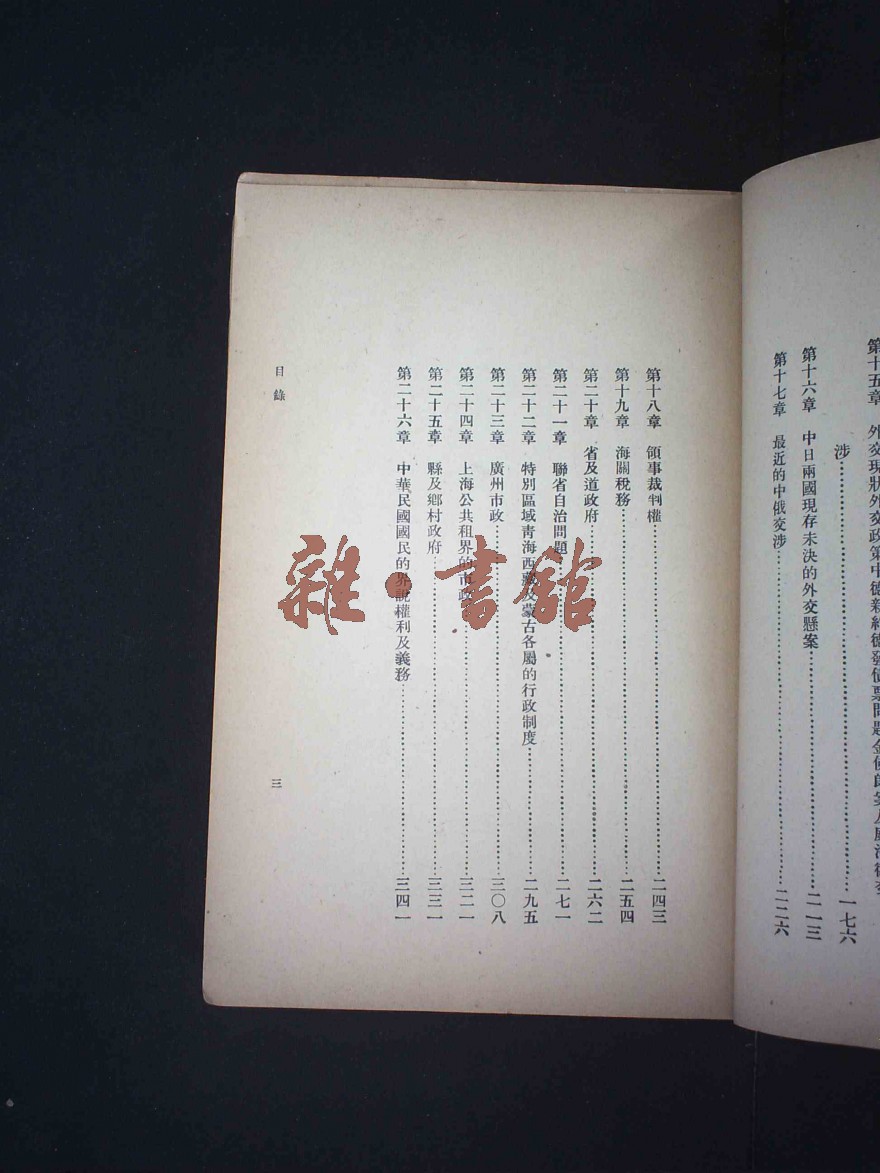 第十五章　外交現狀外交政策中德新約德發債票問題金佛郎案及威海衛交
涉……一七六
第十六章　中日兩國現存未決的外交懸案……二一三
第十七章　最近的中俄交涉……二二六
第十八章　領事裁判權……二四三
第十九章　海關稅務……二五四
第二十章　省及道政府……二六二
第二十一章　聯省自治問題……二七一
第二十二章　特別區域靑海西藏及蒙古各屬的行政制度……二九五
第二十三章　廣州市政……三〇八
第二十四章　上海公共租界的市政……三二一
第二十五章　縣及鄉村政府……三三一
第二十六章　中華民國國民的界說權利及義務……三四一
目錄
三
雜·書館